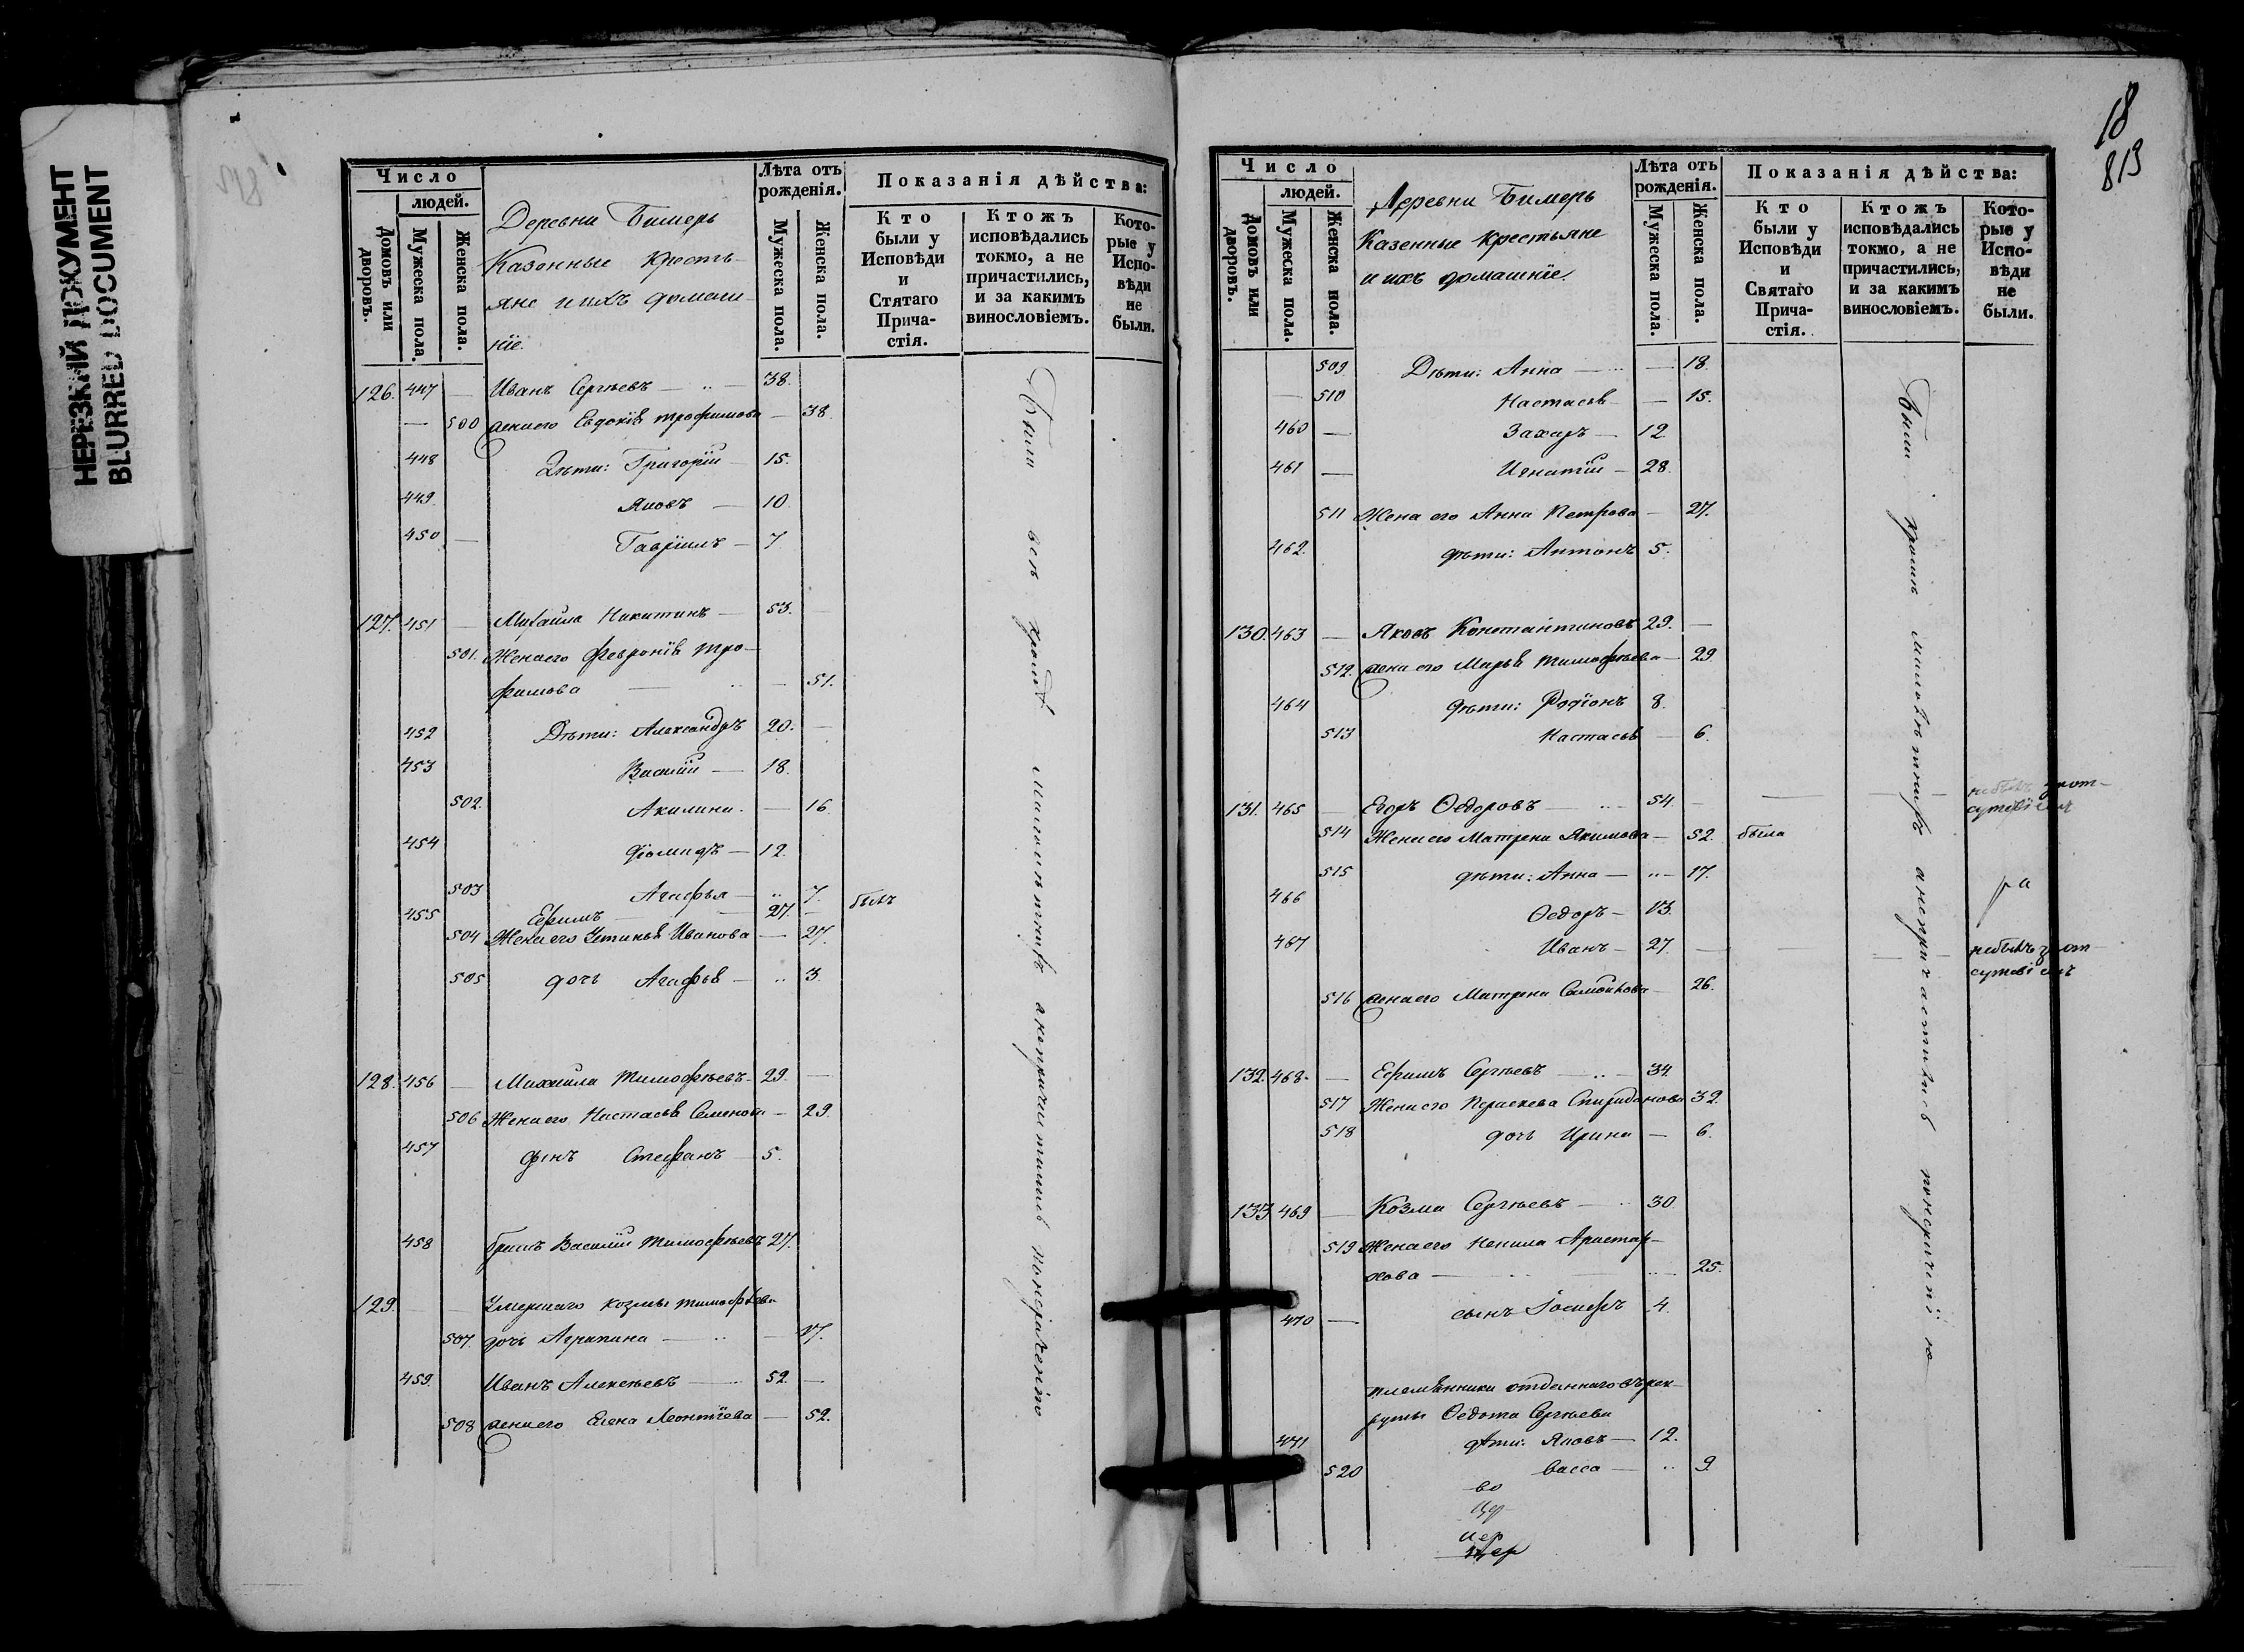 НЕРЕЗКИЙ ДОКУМЕНТ
BLURRED DOCUMENT
Число
людей.
Домовъ или дворовъ.
Мужеска пола.
Женска пола.
Деревни Бимерь
Казенные Кресть-
яне и ихъ домаш-
ніе.
Лѣта отъ рожденія.
Мужеска пола.
Женска пола.
Показанія дѣйства:
Кто были у Исповѣди и Стятаго Прича-стія.
Ктожъ исповѣдались токмо, а не причастились, и за какимъ винословіемъ.
Кото-рые у Испо-вѣди не были.
126. 447 — Иванъ Сергѣевъ — 38.
— 500 жена его Евдокія Трофимова — 38.
448 Дѣти: Григорій — 15.
449 Яковъ — 10.
450 — Гавріилъ — 7
127. 451 — Михайла Никитинъ — 53. —
501. Жена его Февронія Тро-
фимова — — 51.
452 Дѣти: Александръ 20. —
453 Василій — 18.
502. Акилина. — 16.
454 Діомидъ — 12.
503 Агафья — 7.
455 Ефимъ — 27. — былъ
504 Жена его Устинья Иванова — 27.
505 дочь Агафья — 3.
128. 456 — Михаила Тимофѣевъ — 29. —
506 Жена его Настасья Семенова — 29.
457 сынъ Стефанъ 5.
458 братъ Василій Тимофѣевъ 27.
129. — — Умершаго Козмы Тимофѣева
507. дочь Агрипина — — 17.
459. Иванъ Алексѣевъ — 52. —
508 жена его Елена Леонтіева — 52.
Были всѣ кромѣ малолѣтнихъ а не причастились по нераченію
18
813
Число
людей.
Домовъ или дворовъ.
Мужеска пола.
Женска пола.
Деревни Бимерь
Казенные крестьяне
и ихъ домашніе.
Лѣта отъ рожденія.
Мужеска пола.
Женска пола.
Показанія дѣйства:
Кто были у Исповѣди и Святаго Прича-стія.
Ктожъ исповѣдались токмо, а не причастились, и за какимъ винословіемъ.
Кото-рые у Испо-вѣди не были.
509 Дѣти: Анна — — 18.
— 510 Настасья — — 15.
460 — Захаръ — 12.
461 — Игнатій — 28.
511 Жена его Анна Петрова — 27.
462. дѣти: Антонъ 5.
130. 463 — Яковъ Константиновъ 29. —
512. жена его Марья Тимофѣева — 29.
464 дѣти: Родіонъ 8.
513 Настасья — 6.
131. 465 — Егоръ Ѳедоровъ — 54. — — — не былъ за от-
сутствіемъ
514 Жена его Матрена Якимова — 52. была
515 дѣти: Анна — — 17.
466 Ѳедоръ — 13.
467 Иванъ — 27. — — — не былъ за от-
сутствіемъ
516 жена его Матрена Самойлова — 26.
132. 468. — Ефимъ Сергѣевъ — 34.
517 Жена его Параскева Спиридонова 32.
518 дочь Ирина — 6.
133 469 — Козма Сергѣевъ — 30
519 Жена его Ненила Аристар-
хова — — 25.
470 — сынъ Іосифъ 4.
племянники отданнаго въ рек-
руты Ѳедота Сергѣева
471 дѣти: Яковъ — 12.
520 Васса — 9.
Были кромѣ малолѣтнихъ а не причастились по нераченію